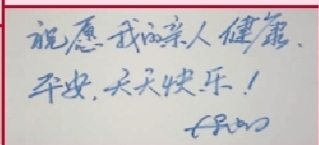 祝愿我的亲人健康、
平安，天天快乐！